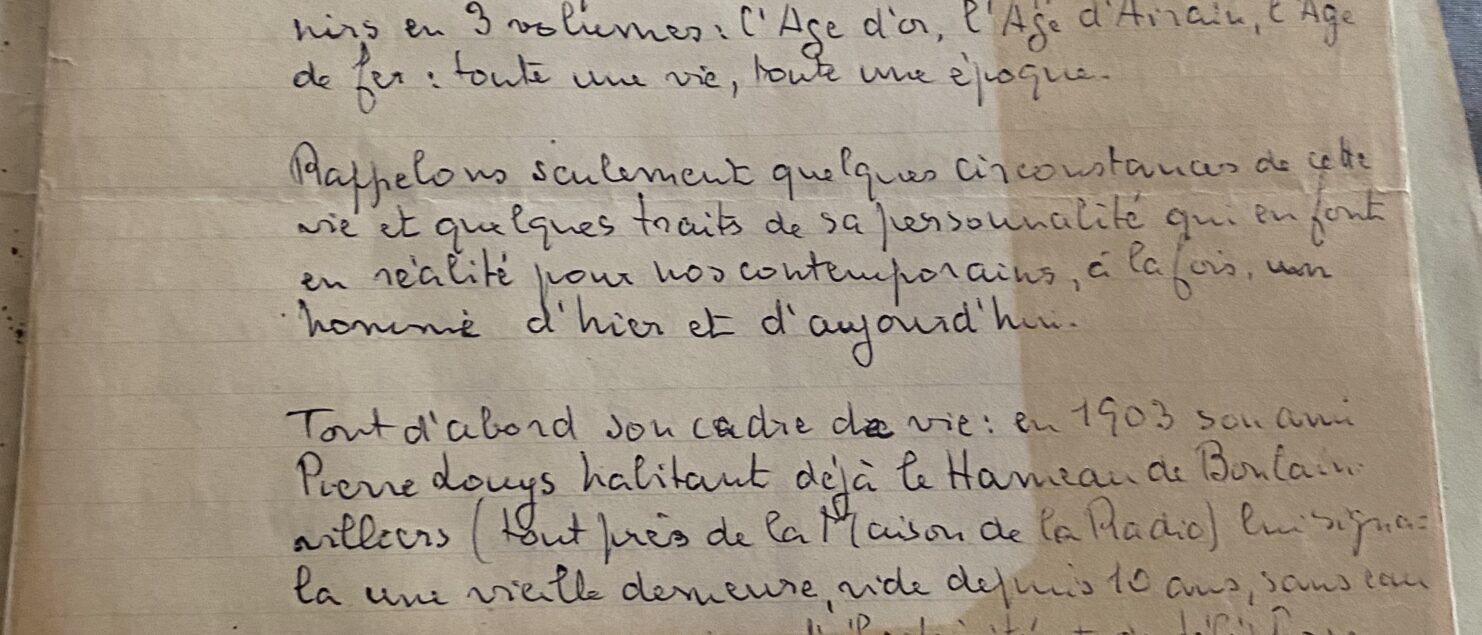 nirs en 3 volumes : l'Age d'or, l'Age d'Airain, l'Age
de fer : toute une vie, toute une époque.
Rappelons seulement quelques circonstances de cette
vie et quelques traits de sa personnalité qui en font
en réalité pour nos contemporains, à la fois, un
homme d'hier et d'aujourd'hui.
Tout d'abord son cadre de vie : en 1903 son ami
Pierre Louys habitant déjà le Hameau de Boulain-
villiers (tout près de la Maison de la Radio) lui signa-
la une vieille demeure, vide depuis 10 ans, sans eau